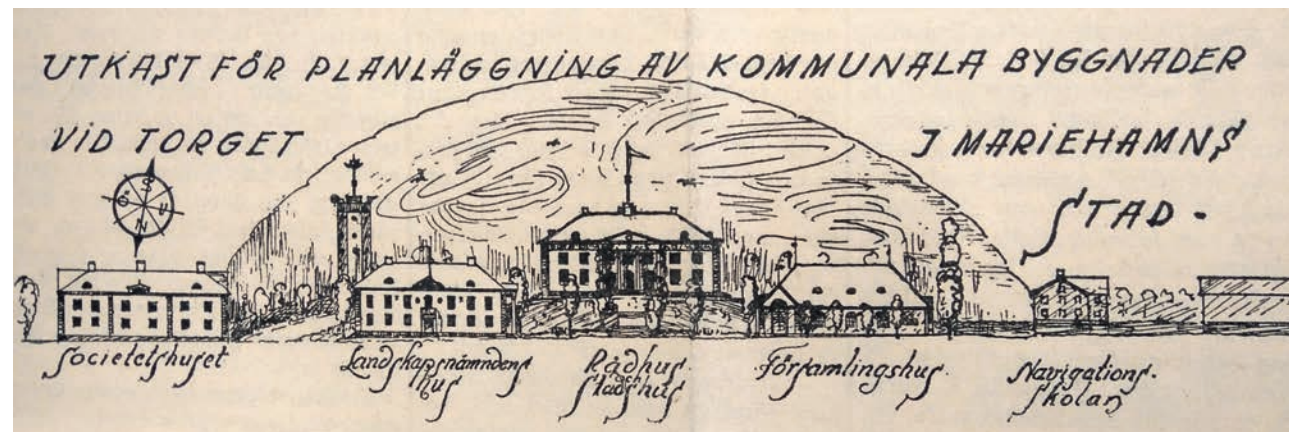 UTKAST FÖR PLANLÄGGNING AV KOMMUNALA BYGGNADER
VID TORGET I MARIEHAMNS
STAD.
S
Ö V
N
Societetshuset
Landskapsnämndens
hus
Rådhus
och
Stadshus
Församlingshus.
Navigations.
Skolan